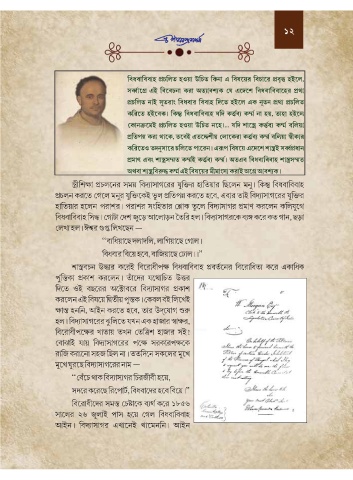 ১২
বিধবাবিবাহ প্রচলিত হওয়া উচিত কিনা এ বিষয়ের বিচারে প্রবৃত্ত হইলে,
সর্বাগ্রে এই বিবেচনা করা অত্যাবশ্যক যে এদেশে বিধবাবিবাহের প্রথা
প্রচলিত নাই সুতরাং বিধবার বিবাহ দিতে হইলে এক নূতন প্রথা প্রচলিত
করিতে হইবেক। কিন্তু বিধবাবিবাহ যদি কর্ত্তব্য কর্ম্ম না হয়, তাহা হইলে
কোনক্রমেই প্রচলিত হওয়া উচিত নহে।... যদি শাস্ত্রে কর্ত্তব্য কর্ম্ম বলিয়া
প্রতিপন্ন করা থাকে, তবেই এতদ্দেশীয় লোকেরা কর্ত্তব্য কর্ম্ম বলিয়া স্বীকার
করিতেও তদনুসারে চলিতে পারেন। এরূপ বিষয়ে এদেশে শাস্ত্রই সর্ব্বপ্রধান
প্রমাণ এবং শাস্ত্রসম্মত কর্ম্মই কর্ত্তব্য কর্ম্ম। অতএব বিধবাবিবাহ শাস্ত্রসম্মত
অথবা শাস্ত্রবিরুদ্ধ কর্ম্ম এই বিষয়ের মীমাংসা করাই অগ্রে আবশ্যক।
স্ত্রীশিক্ষা প্রচলনের সময় বিদ্যাসাগরের যুক্তির হাতিয়ার ছিলেন মনু। কিন্তু বিধবাবিবাহ
প্রচলন করাতে গেলে মনুর যুক্তিকেই ভুল প্রতিপন্ন করতে হবে, এবার তাই বিদ্যাসাগরের যুক্তির
হাতিয়ার হলেন পরাশর। পরাশর সংহিতার শ্লোক তুলে বিদ্যাসাগর প্রমাণ করলেন কলিযুগে
বিধবাবিবাহ সিদ্ধ। গোটা দেশ জুড়ে আলোড়ন তৈরি হল। বিদ্যাসাগরকে ব্যঙ্গ করে কত গান, ছড়া
লেখা হল। ঈশ্বর গুপ্ত লিখছেন —
“বাধিয়াছে দলাদলি, লাগিয়াছে গোল।
বিধবার বিয়ে হবে, বাজিয়াছে ঢোল।।”
শাস্ত্রবচন উদ্ধার করেই বিরোধীপক্ষ বিধবাবিবাহ প্রবর্তনের বিরোধিতা করে একাধিক
পুস্তিকা প্রকাশ করলেন। তাঁদের যথোচিত উত্তর
দিতে ওই বছরের অক্টোবরে বিদ্যাসাগর প্রকাশ
করলেন এই বিষয়ে দ্বিতীয় পুস্তক। কেবল বই লিখেই
ক্ষান্ত হননি, আইন করতে হবে, তার উদ্যোগ শুরু
হল। বিদ্যাসাগরের ঝুলিতে যখন এক হাজার স্বাক্ষর,
বিরোধীপক্ষের খাতায় তখন তেত্রিশ হাজার সই!
বোঝাই যায় বিদ্যাসাগরের পক্ষে সরকারপক্ষকে
রাজি করানো সহজ ছিল না। ততদিনে সকলের মুখে
মুখে ঘুরছে বিদ্যাসাগরের নাম —
“বেঁচে থাক বিদ্যাসাগর চিরজীবী হয়ে,
সদরে করেছে রিপোর্ট, বিধবাদের হবে বিয়ে।”
বিরোধীদের সমস্ত চেষ্টাকে ব্যর্থ করে ১৮৫৬
সালের ২৬ জুলাই পাস হয়ে গেল বিধবাবিবাহ
আইন। বিদ্যাসাগর এখানেই থামেননি। আইন